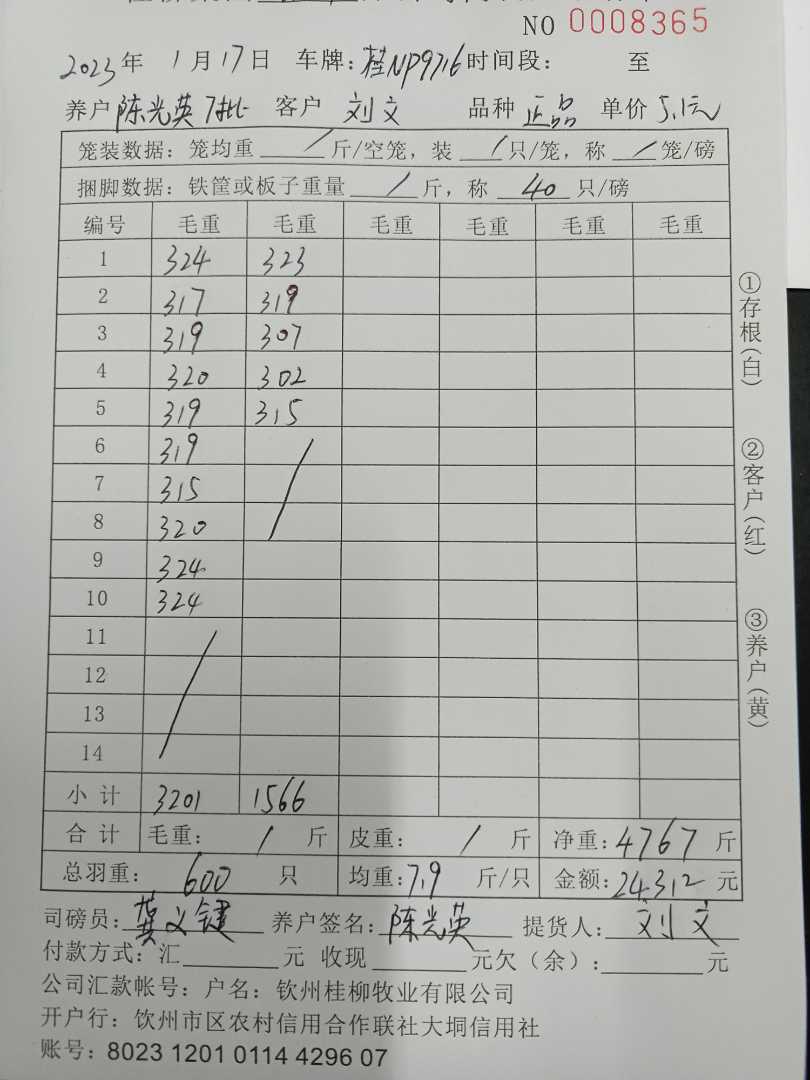 NO 0008365
2023年 1月17日 车牌:桂NP9716 时间段: 至
养户 陈光英 7批 客户 刘文 品种 正品 单价 5.1元
笼装数据: 笼均重 / 斤/空笼, 装 / 只/笼, 称 / 笼/磅
捆脚数据: 铁筐或板子重量 / 斤, 称 40 只/磅
编号 毛重 毛重 毛重 毛重 毛重 毛重
1 324 323
2 317 319
3 319 307
4 320 302
5 319 315
6 319 /
7 315
8 320
9 324
10 324
11 /
12
13
14
小计 3201 1566
合计 毛重: / 斤 皮重: / 斤 净重: 4767 斤
总羽重: 600 只 均重: 7.9 斤/只 金额: 24312 元
司磅员: 龚义键 养户签名: 陈光英 提货人: 刘文
付款方式: 汇 元 收现 元欠(余): 元
公司汇款帐号: 户名: 钦州桂柳牧业有限公司
开户行: 钦州市区农村信用合作联社大垌信用社
账号: 8023 1201 0114 4296 07
①存根(白)
②客户(红)
③养户(黄)